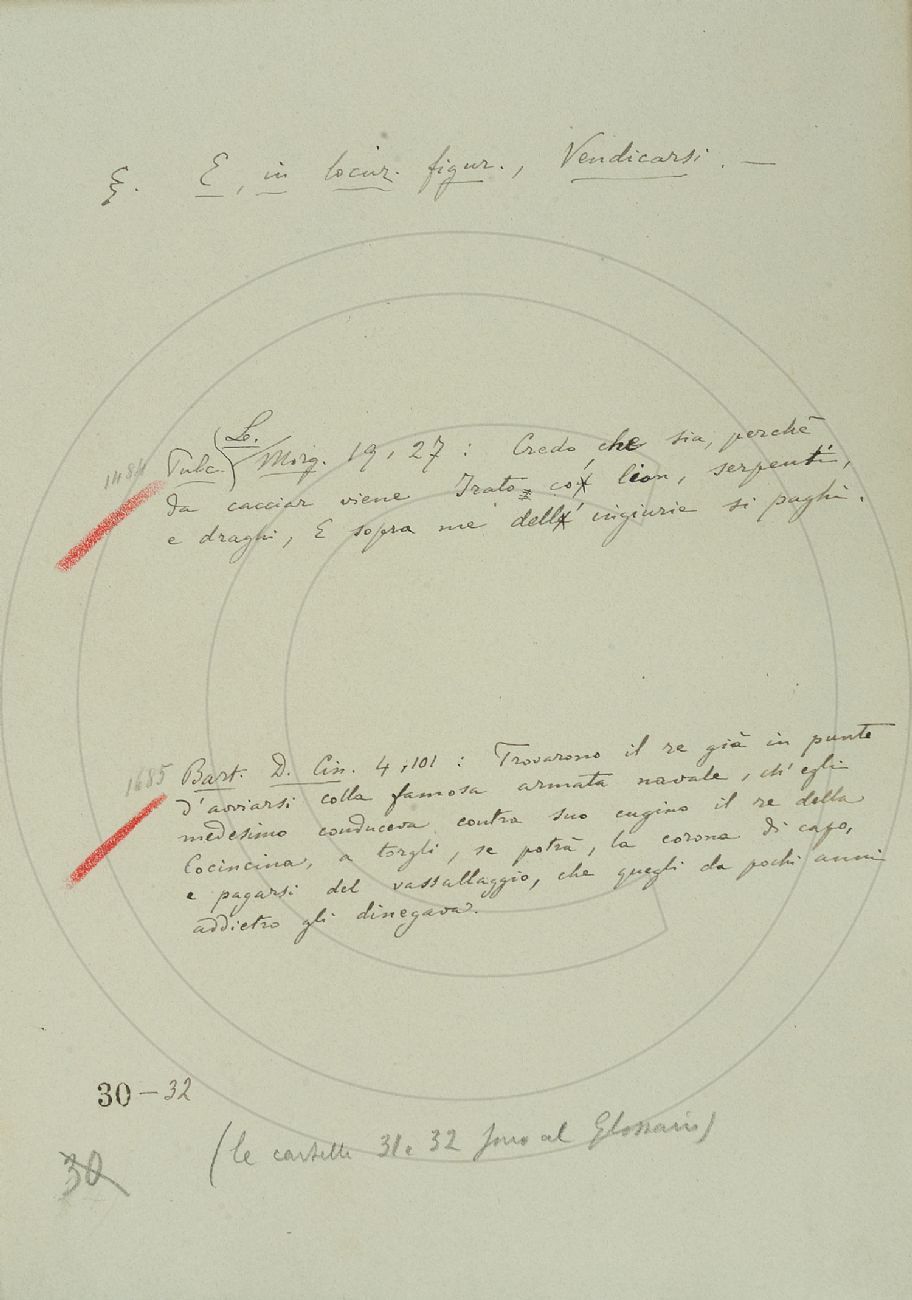 §. E, in locuz. figur., Vendicarsi. —
L.
1484 Pulc. Morg. 19, 27 : Credo che sia, perchè
da cacciar viene Irato co' lion, serpenti,
e draghi, E sopra me dell' ingiurie si paghi.
1685 Bart. D. Cin. 4, 101 : Trovarono il re già in punto
d'avviarsi colla famosa armata navale, ch'egli
medesimo conduceva contra suo cugino il re della
Cocincina, a torgli, se potrà, la corona di capo,
e pagarsi del vassallaggio, che quegli da pochi anni
addietro gli dinegava.
30 – 32
(le cartelle 31 e 32 sono al Glossario)
30